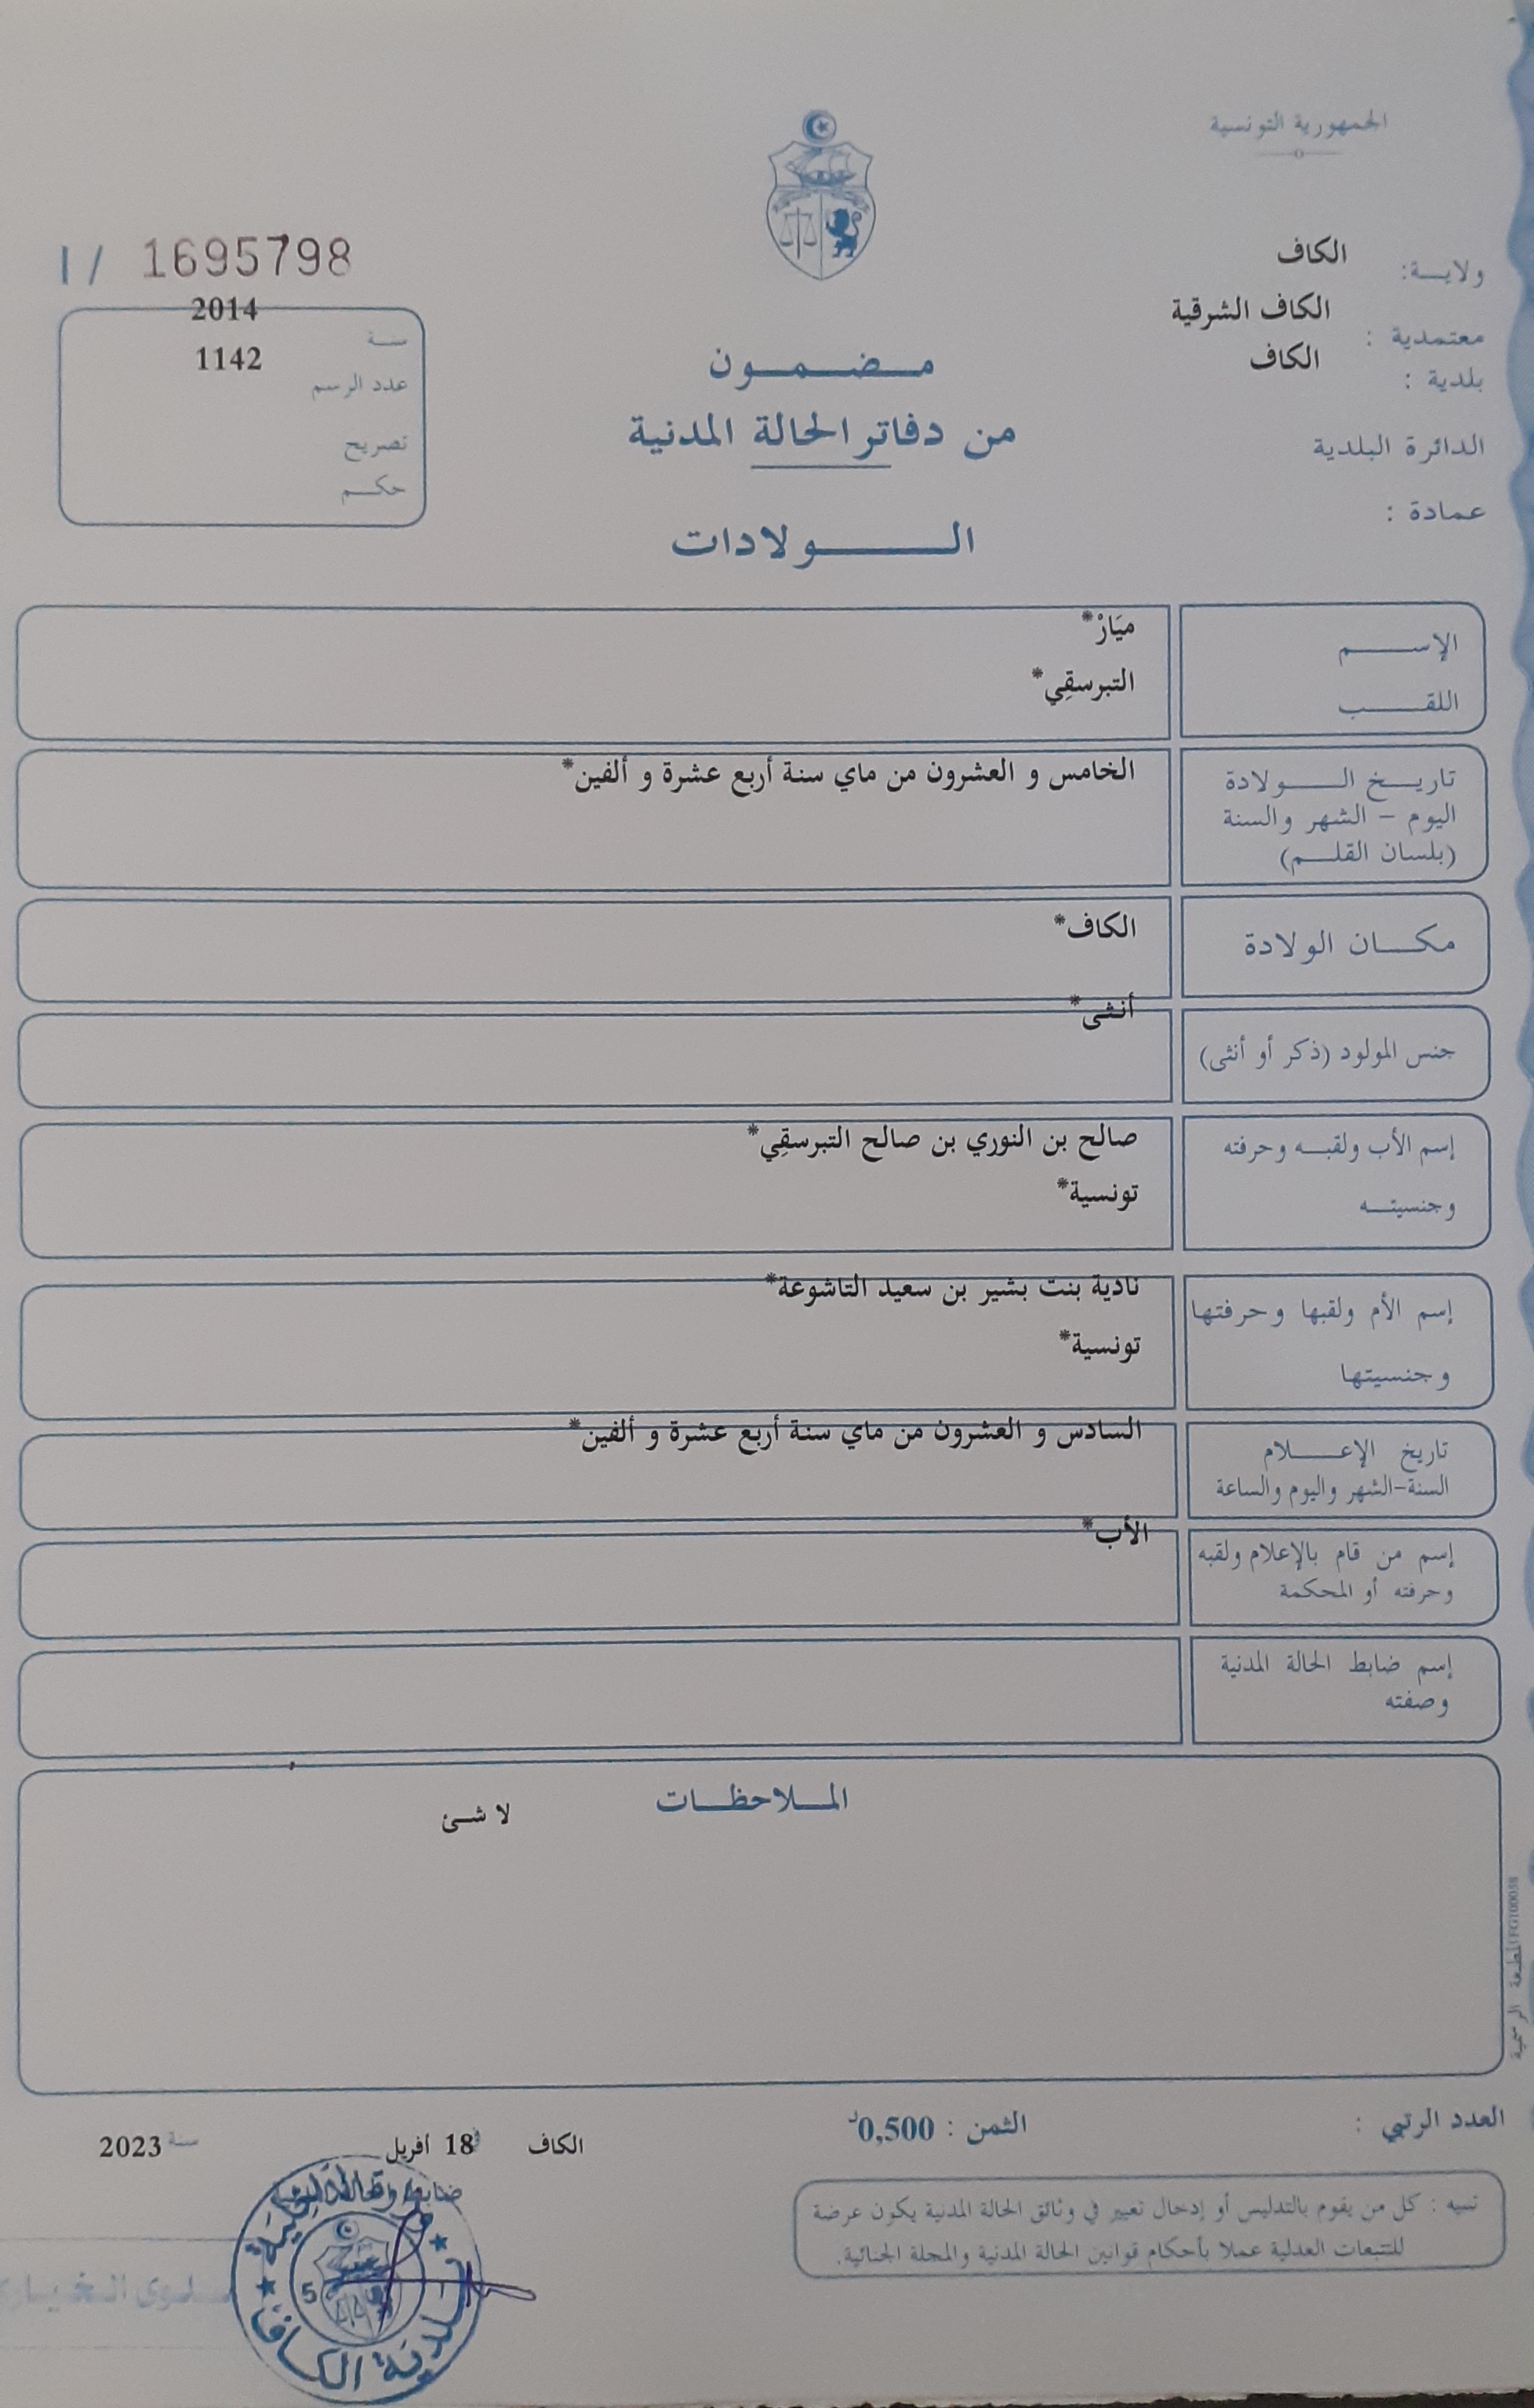 الجمهورية التونسية
ولايــة: الكاف
معتمدية : الكاف الشرقية
بلدية : الكاف
الدائرة البلدية
عمادة :
I / 1695798
سنة 2014
عدد الرسم 1142
تصريح
حكم
مضمون
من دفاتر الحالة المدنية
الولادات
الإسم ميَارْ*
اللقب التبرسقِي*
تاريخ الولادة الخامس و العشرون من ماي سنة أربع عشرة و ألفين*
اليوم - الشهر والسنة
(بلسان القلم)
مكان الولادة الكاف*
جنس المولود (ذكر أو أنثى) أنثى*
إسم الأب ولقبه وحرفته صالح بن النوري بن صالح التبرسقِي*
وجنسيته تونسية*
إسم الأم ولقبها وحرفتها نادية بنت بشير بن سعيد التاشوعة*
وجنسيتها تونسية*
تاريخ الإعلام السادس و العشرون من ماي سنة أربع عشرة و ألفين*
السنة-الشهر واليوم والساعة
إسم من قام بالإعلام ولقبه الأب*
وحرفته أو المحكمة
إسم ضابط الحالة المدنية
وصفته
الملاحظات
لا شئ
المطبعة الرسمية
العدد الرتبي :
الثمن : 0,500د
الكاف 18 أفريل سنة 2023
تنبيه : كل من يقوم بالتدليس أو إدخال تغيير في وثائق الحالة المدنية يكون عرضة
للتتبعات العدلية عملا بأحكام قوانين الحالة المدنية والمجلة الجنائية.
بلدية الكاف
5